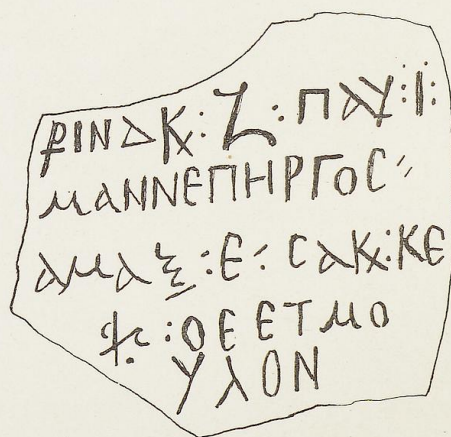 ΡΙΝΔΚ : Ζ : ΠΑΥ : Ι :
ΜΑΝΝΕΠΗΡΓΟC〃
ΑΜΑΞ : Ε : CΑΚ : ΚΕ
: ΟΕΕΤΜΟ
ΥΛΟΝ